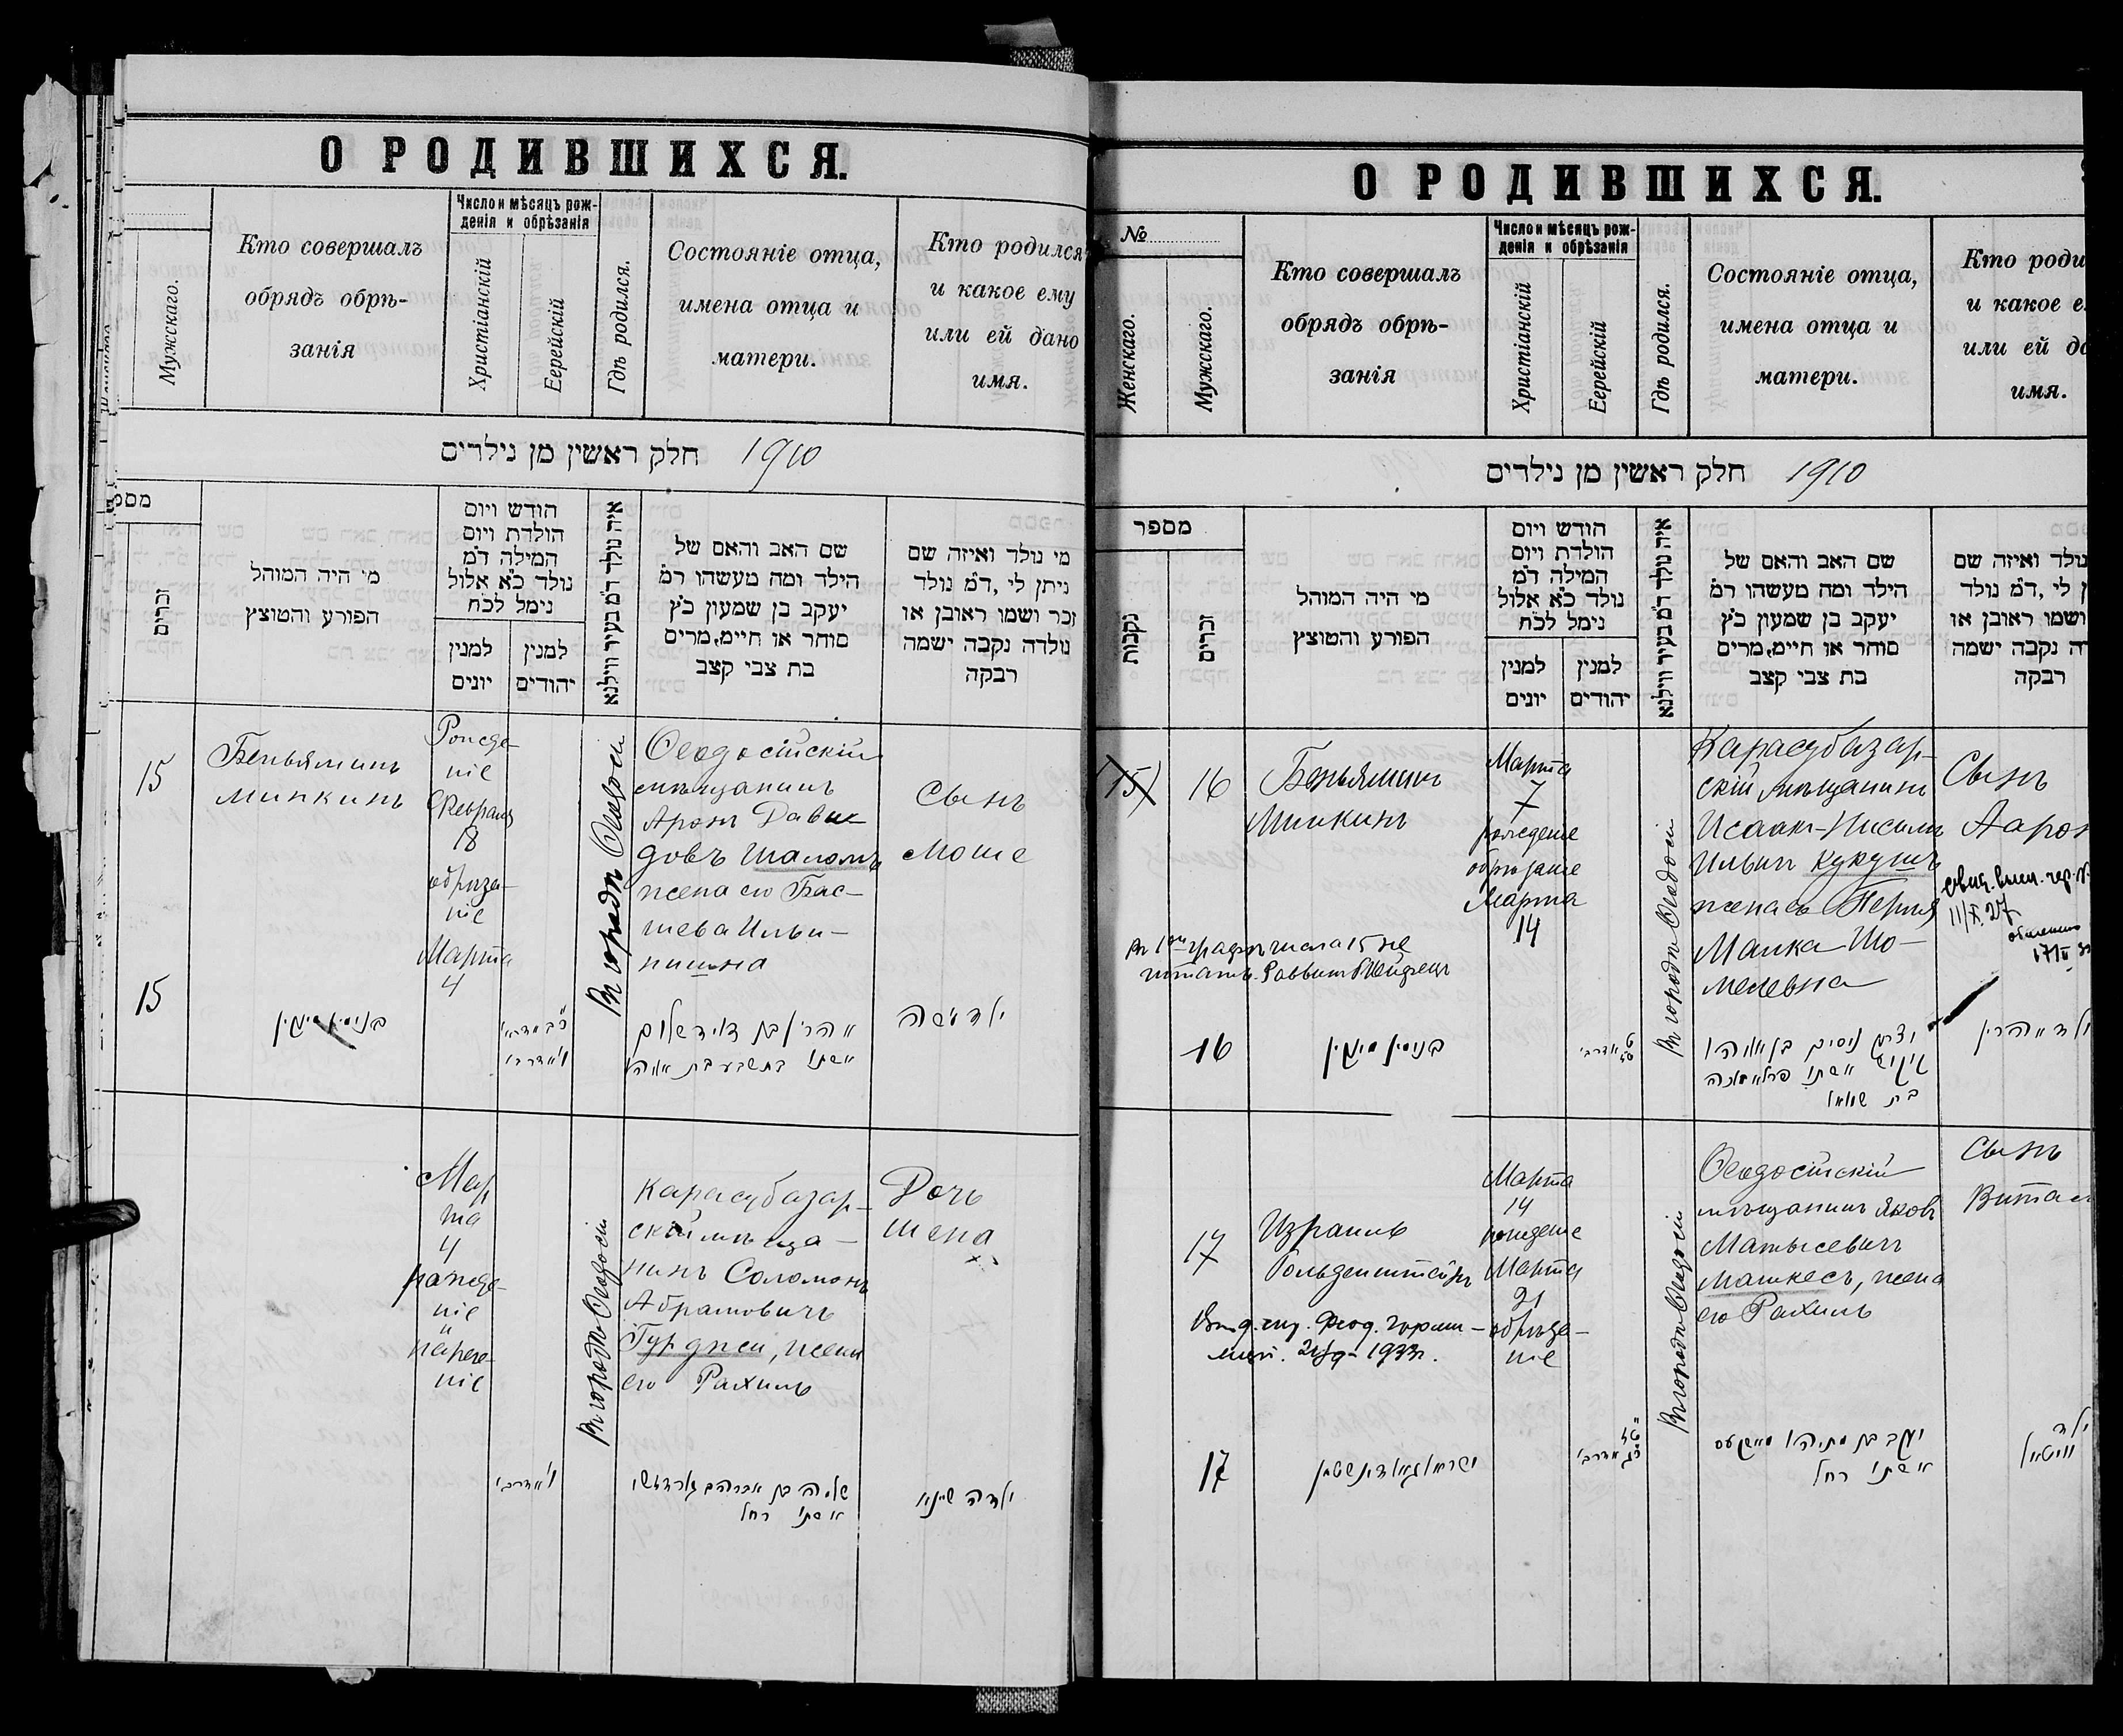 О РОДИВШИХСЯ.
Мужскаго.
Кто совершалъ
обрядъ обрѣ-
занія
Число и мѣсяцъ рож-
денія и обрѣзанія
Христіанскій
Еерейскій
Гдѣ родился.
Состояніе отца,
имена отца и
матери.
Кто родился
и какое ему
или ей дано
имя.
חלק ראשין מן נילדים 1910
מספ
זכרים
מי היה המוהל
הפורע והטוצץ
הודש ויום
הולדת ויום
המילה ד״מ
נולד כ״א אלול
נימל לכ״ח
למנין
יונים
למנין
יהודים
איה נולד ד״מ בעיר ווילנא
שם האב והאם של
הילד ומה מעשהו רמ״
יעקב בן שמעון כ״ץ
סוחר או חיים, מרים
בת צבי קצב
מי נולד ואיזה שם
ניתן לי, ד״מ נולד
זכר ושמו ראובן או
נולדה נקבה ישמה
רבקה
15
Беньяминъ
Минкинъ
Рожде-
ніе
Февраля
18
обрѣза-
ніе
Марта
4
Въ городѣ Ѳеодосіи
Ѳеодосійскій
мѣщанинъ
Аронъ Дави-
довъ Шаломъ
жена его Бас-
шева Ильи-
нишна
Сынъ
Моше
15
בנימין מינקין
אהרן בן דוד שלום
אשתו בתשבע בת אליהו
ילד משה
Мар
та
4
рожде-
ніе
и
нарече-
ніе
Въ городѣ Ѳеодосіи
Карасубазар-
скій мѣща-
нинъ Соломонъ
Абрамовичъ
Гурджи, жена
его Рахиль
Дочь
Шена
ו׳ אדר ב׳
שלמה בן אברהם גורדזשי
אשתו רחל
ילדה שיינא
О РОДИВШИХСЯ.
№
Женскаго.
Мужскаго.
Кто совершалъ
обрядъ обрѣ-
занія
Число и мѣсяцъ рож-
денія и обрѣзанія
Христіанскій
Еерейскій
Гдѣ родился.
Состояніе отца,
имена отца и
матери.
Кто роди
и какое е
или ей да
имя.
חלק ראשין מן נילדים 1910
מספר
נקבות
זכרים
מי היה המוהל
הפורע והטוצץ
הודש ויום
הולדת ויום
המילה ד״מ
נולד כ״א אלול
נימל לכ״ח
למנין
יונים
למנין
יהודים
איה נולד ד״מ בעיר ווילנא
שם האב והאם של
הילד ומה מעשהו רמ״
יעקב בן שמעון כ״ץ
סוחר או חיים, מרים
בת צבי קצב
נולד ואיזה שם
ן לי, ד״מ נולד
ושמו ראובן או
דה נקבה ישמה
רבקה
15) 16
Беньяминъ
Минкинъ
Марта
7
рожденіе
обрѣзаніе
Марта
14
Въ 1ой графѣ числа 15 не
читать. Раввинъ
Въ городѣ Ѳеодосіи
Карасубазар-
скій мѣщанинъ
Исаакъ-Нисимъ
Ильичъ Кукушъ
жена его Перля
Малка Шо-
мелевна
Сынъ
Аарон
11/X 27
16
בנימין מינקין
יצחק ניסים בן אליהו
קוקוש אשתו פרלא מלכה
בת שמואל
ילד אהרן
17
Израиль
Гольденштейнъ
Марта
14
рожденіе
Марта
21
обрѣза-
ніе
1933г.
Въ городѣ Ѳеодосіи
Ѳеодосійскій
мѣщанинъ Яковъ
Матысевичъ
Машкесъ, жена
его Рахиль
Сынъ
Витал
17
ישראל גאלדענשטיין
יעקב בן מתיהו מאשקעס
אשתו רחל
ילד
וויטאל